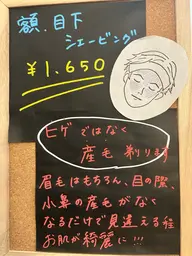 額、目下
シェービング
¥1.650
ヒゲではなく
産毛剃ります
眉毛はもちろん、目の際、
小鼻の産毛がなく
なるだけで見違える程
お肌が綺麗に!!!